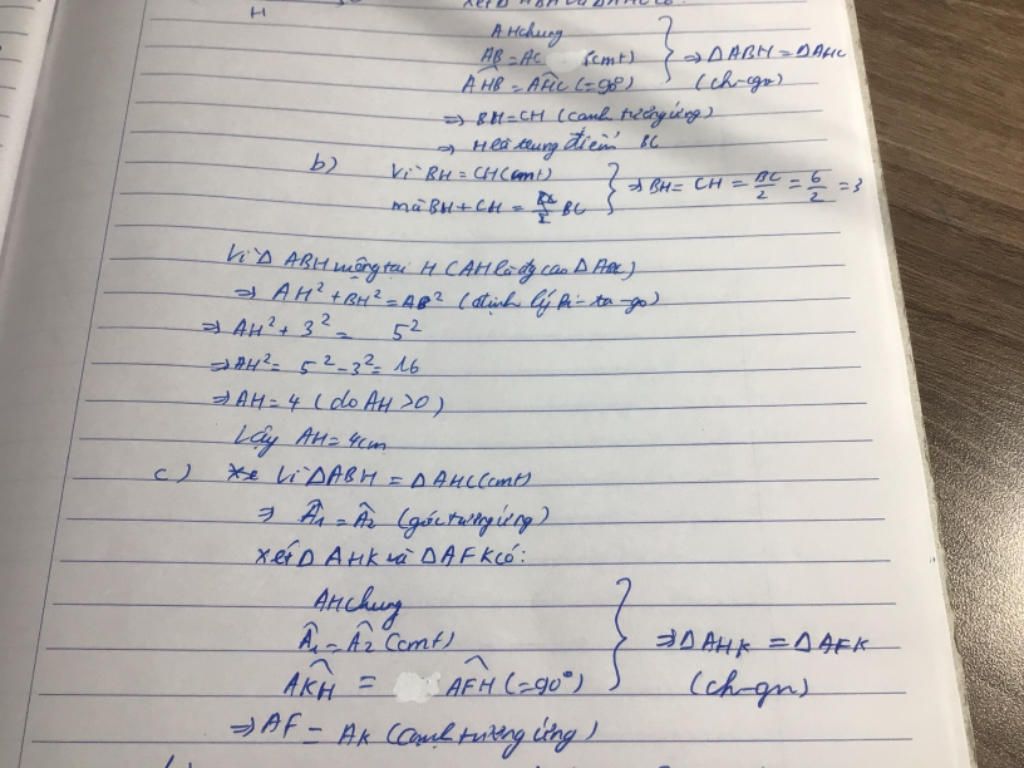 H
xét Δ ABH và Δ AHC có:
AH chung
AB = AC (cmt)
AHB = AHC (= 90°)
⇒ Δ ABH = Δ AHC
(ch-cgv)
⇒ BH = CH (cạnh tương ứng)
⇒ H là trung điểm BC
b) Vì BH = CH (cmt)
mà BH + CH = BC
⇒ BH = CH = BC/2 = 6/2 = 3
Vì Δ ABH vuông tại H (AH là đg cao Δ ABC)
⇒ AH² + BH² = AB² (định lý Pi-ta-go)
⇒ AH² + 3² = 5²
⇒ AH² = 5² - 3² = 16
⇒ AH = 4 (do AH > 0)
Vậy AH = 4cm
c) Vì Δ ABH = Δ AHC (cmt)
⇒ Â1 = Â2 (góc tương ứng)
xét Δ AHK và Δ AFK có:
AH chung
Â1 = Â2 (cmt)
AKH = AFH (= 90°)
⇒ Δ AHK = Δ AFK
(ch-gn)
⇒ AF = AK (cạnh tương ứng)